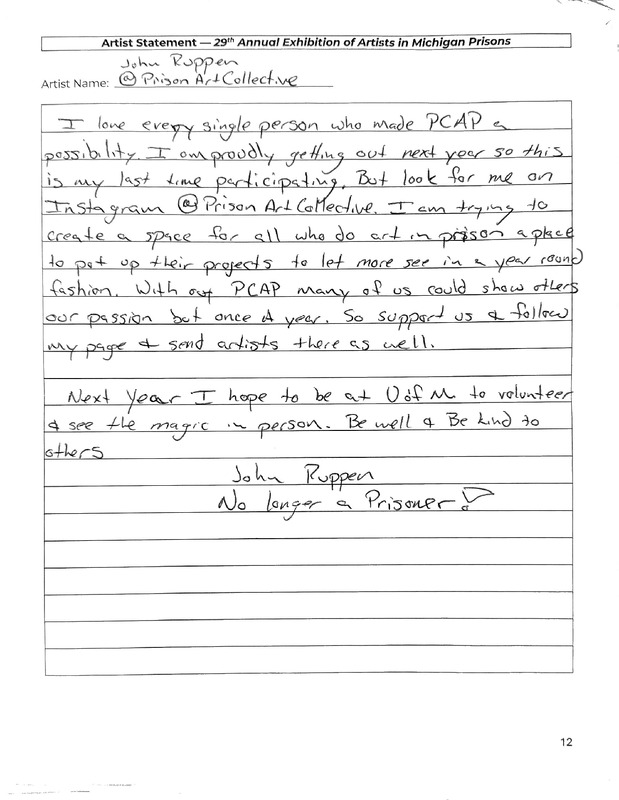 Artist Statement — 29th Annual Exhibition of Artists in Michigan Prisons
John Ruppen
Artist Name: @ Prison Art Collective
I love every single person who made PCAP a
possibility. I am proudly getting out next year so this
is my last time participating. But look for me on
Instagram @ Prison Art Collective. I am trying to
create a space for all who do art in prison a place
to put up their projects to let more see in a year round
fashion. With out PCAP many of us could show others
our passion but once A year. So support us & follow
my page & send artists there as well.
Next Year I hope to be at U of M to volunteer
& see the magic in person. Be well & Be kind to
others
John Ruppen
No longer a Prisoner!
12